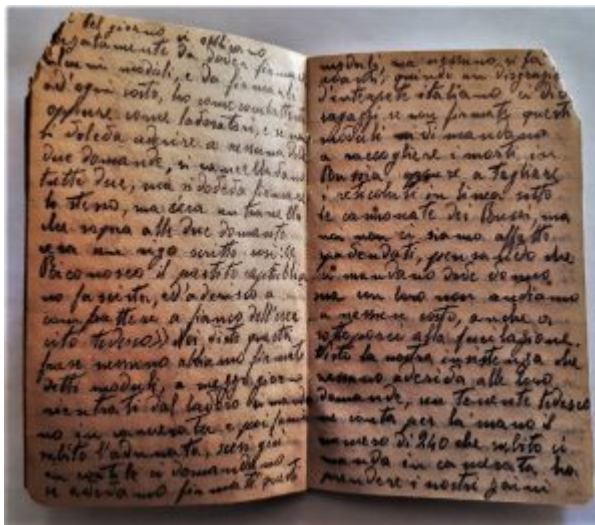 del giorno, si
da dover firmare
moduli, e da firmarli
ad ogni costo, ho come combattenti
oppure come lavoratori, e se non
si voleva aderire a nessuna delle
due domande, si cancelladano
tutte due, ma si doveda firmare
lo stesso, ma cera un tranello
che sopra alle due domande
cera una rigo scritto così: «
Riconosco il partito repubblica
no fascista, ed'aderisco a
combattere a fianco dell'eser
cito tedesco» Noi, visto questa
frase nessuno abbiamo firmato
detti moduli, a mezzogiorno
rientrati dal lavoro ci manda
no in camerata e poi fanno
subito l'adunata, scesi giù
in cortile ci domandano
se avevamo firmato questi
moduli, ma nessuno si fa
avanti, quindi un disgraziato
d'interprete italiano ci dice
ragazzi se non firmate questi
moduli vi mandano
a raccogliere i morti in
Russia oppure a tagliare
i reticolati in linea sotto
le cannonate dei Russi, ma
noi non ci siamo affatto
pensando che
ci mandano dove vonno
ma con loro non andiamo
a nessun costo, anche a
sottoporci alla fucilazione.
Visto la nostra insistenza che
nessuno aderida alle loro
domande, un tenente tedesco
ne conta per la mano il
numero di 240 che subito ci
manda in camerata, ha
prendere i nostri panni